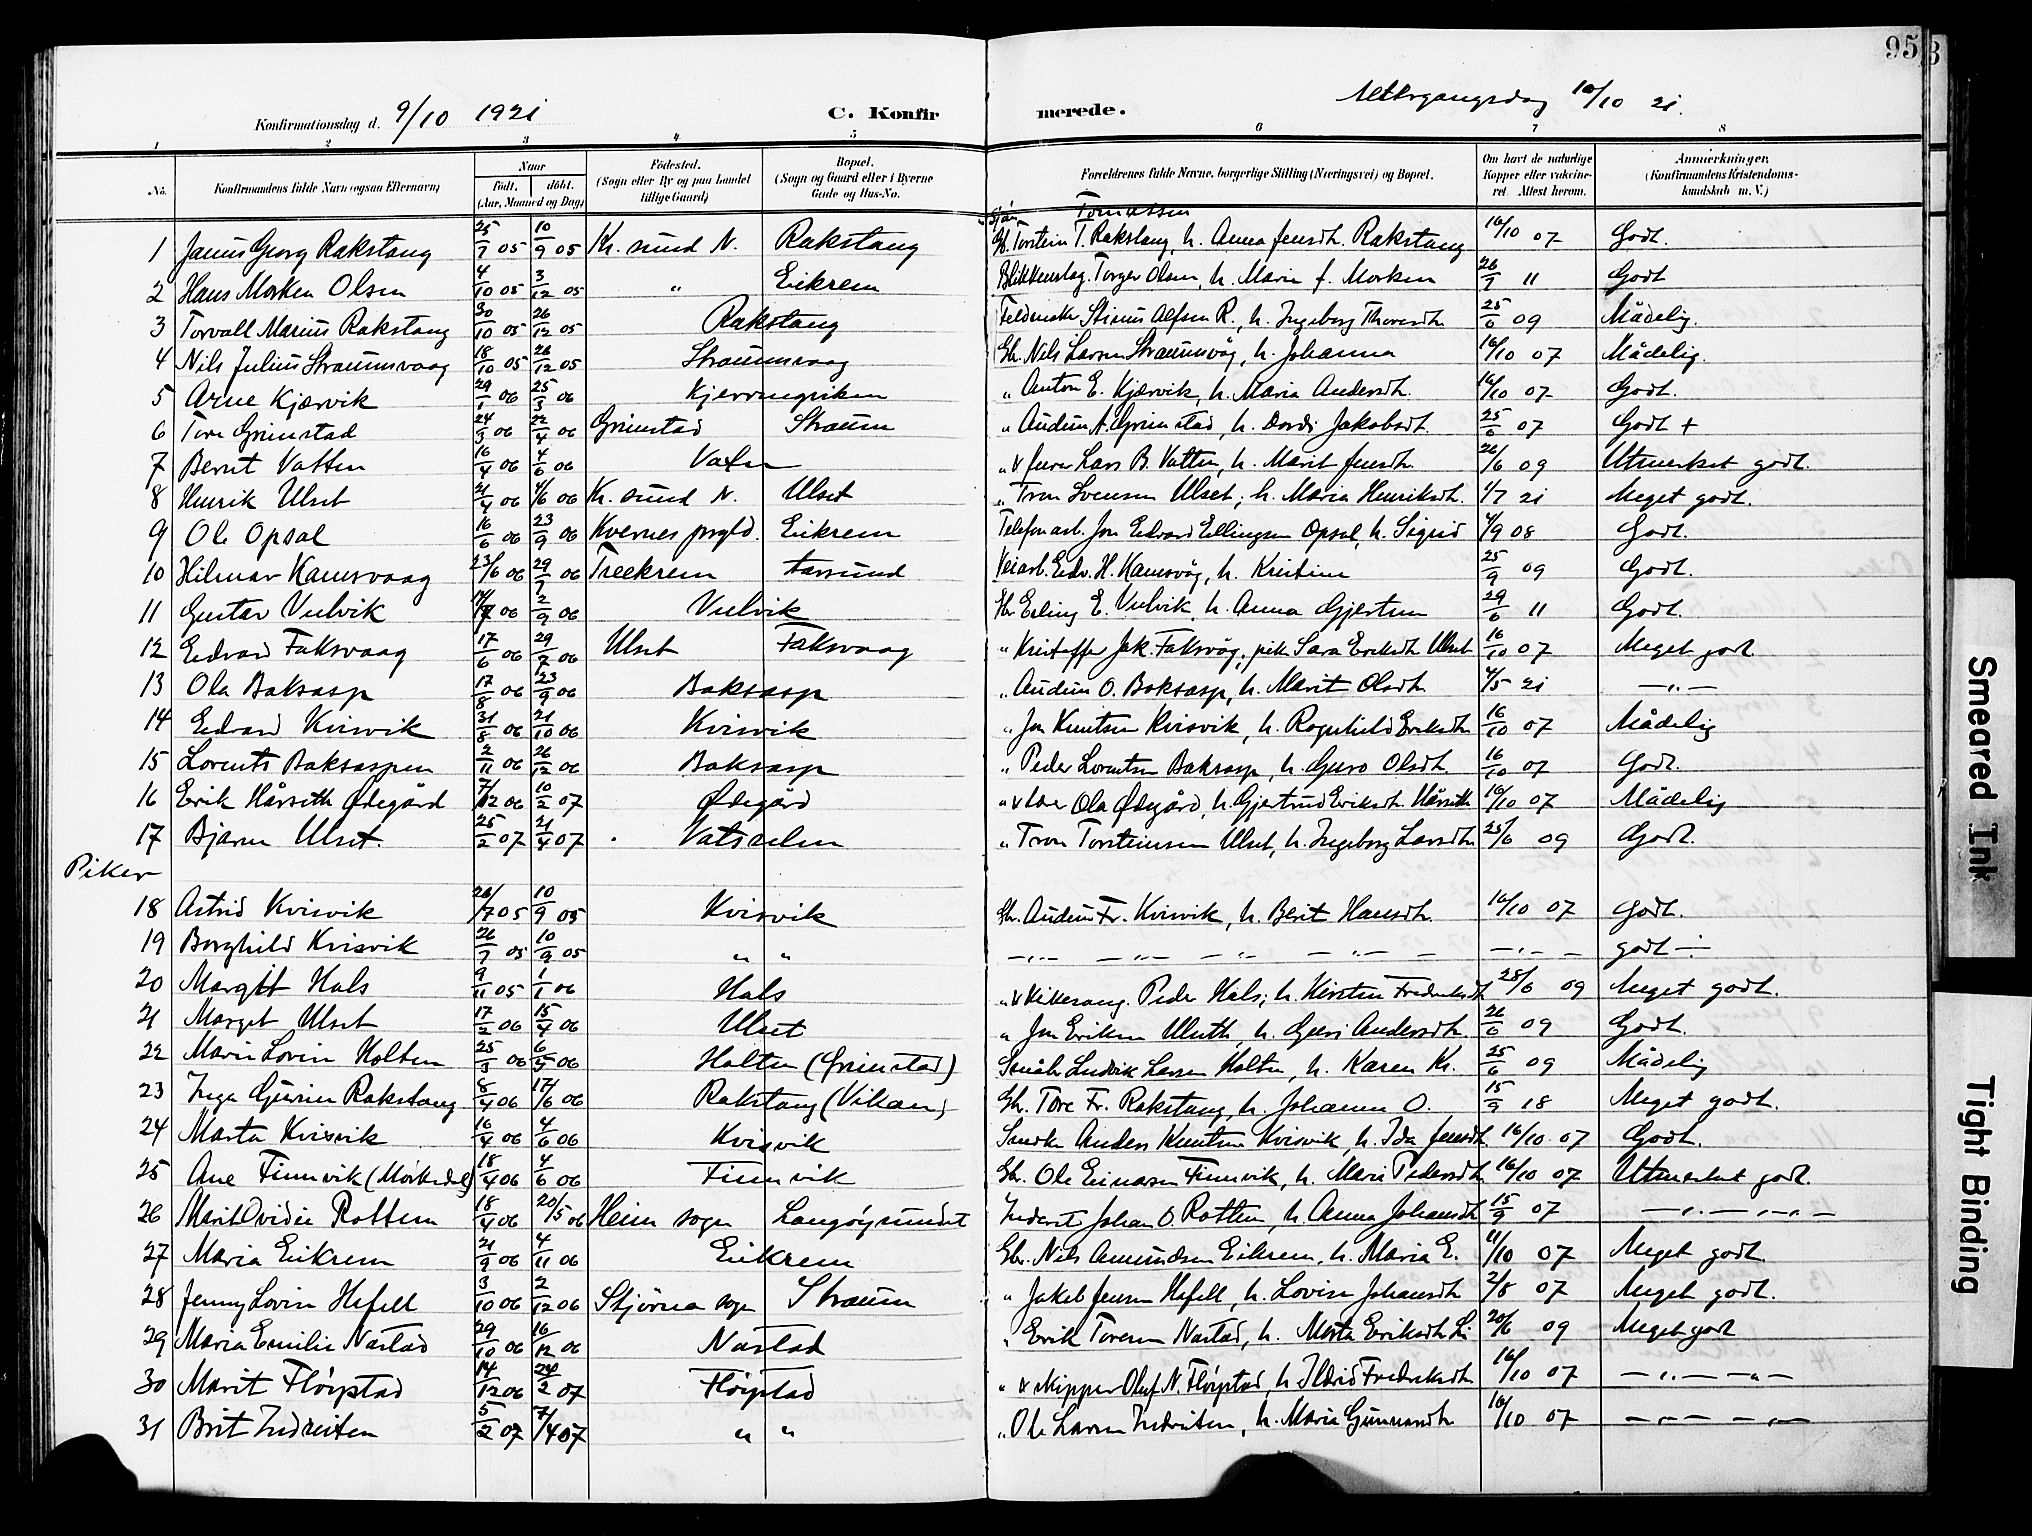 95
Konfirmationsdag d. 9/10 1921 C. Konfirmerede. Altergangsdag 16/10 21.
1 2 3 4 5 6 7 8
No. Konfirmandens fulde Navn (ogsaa Efternavn) Naar født, døbt. (Aar, Maaned og Dag) Fødested. (Sogn eller By og paa Landet tillige Gaard) Bopæl. (Sogn og Gaard eller i Byerne Gade og Hus-No. Forældrenes fulde Navne, borgerlige Stilling (Næringsvei) og Bopæl. Om havt de naturlige Kopper eller vaccineret. Attest herom. Anmerkninger, (Konfirmandens Kristendomskundskab m. V.)
Tomassen
1 Janus Georg Rakstang 25/7 05 10/9 05 Kr. sund N. Rakstang Gb. Torstein T. Rakstang, h. Anna Jensdtr. Rakstang 16/10 07 Godt.
2 Hans Morken Olsen 4/10 05 3/12 05 " Eikrem Blikkenslag. Torger Olsen, h. Marie f. Morken 26/7 11 Godt
3 Torvall Marius Rakstang 30/10 05 26/12 05 Rakstang Stinus Alfsen R., h. Ingeborg Thoresdtr 25/6 09 Mådelig.
4 Nils Julius Straumsvaag 18/10 05 26/12 05 Straumsvaag Gb. Nils Larsen Straumsvåg, h. Johanna 16/10 07 Mådelig.
5 Arne Kjærvik 29/1 06 25/3 06 Kjerringviken " Anton E. Kjærvik, h. Maria Andersdtr. 16/10 07 Godt.
6 Tore Grimstad 24/3 06 22/4 06 Grimstad Straum " Audun A. Grimstad, h. Dordi Jakobsdt. 25/6 07 Godt +
7 Bernt Vatten 16/4 06 4/6 06 " & Lars B. Vatten, h. Marit Jensdtr. 26/6 09 Utmerket godt.
8 Henrik Ulset 21/4 06 4/6 06 Kr. sund N. Ulset " Tron Svensen Ulset, h. Maria Henriksdtr. 1/7 21 Meget godt.
9 Ole Opsal 16/6 06 23/9 06 Kvernes prgld. Eikrem Telefonarb. Jon Edvard Ellingsen Opsal, h. Sigrid 4/9 08 Godt.
10 Hilmar Kamsvaag 23/6 06 29/7 06 Treekrem Aarsund Veiarb. Edv. H. Kamsvåg, h. Kristine 25/9 09 Godt.
11 Gustav Vulvik 2/9 06 Vulvik Gbr. Erling E. Vulvik, h. Anna Gjertsen 29/6 11 Godt.
12 Edvard Faksvaag 17/6 06 29/7 06 Ulset Faksvaag " Kristoffer Jak. Faksvåg, pike Sara Eriksdtr Ulset 16/10 07 Meget godt
13 Ola Baksasp 17/8 06 23/9 06 Baksasp " Audun O. Baksasp, h. Marit Olsdtr. 4/5 21 — " —
14 Edvard Kvisvik 31/8 06 21/10 06 Kvisvik " Jon Knutsen Kvisvik, h. Ragnhild Eriksdtr 16/10 07 Mådelig
15 Lorents Baksaspen 2/11 06 26/12 06 Baksasp " Peder Lorentsen Baksasp, h. Guro Olsdt. 16/10 07 Godt.
16 Erik Hårseth Ødegård 7/12 06 10/2 07 Ødegård " Ola Ødegård, h. Gjertrud Eriksdt. Hårseth 16/10 07 Mådelig
17 Bjarne Ulset. 25/2 07 21/4 07 " Tron Torsteinsen Ulset, h. Ingeborg Larsdtr 25/6 09 Godt.
Piker
18 Astrid Kvisvik 26/7 05 10/9 05 Kvisvik Gbr. Audun Fr. Kvisvik, h. Berit Hansdtr. 16/10 07 Godt.
19 Borghild Kvisvik 26/7 05 10/9 05 " " — " — — " — — " — — " — — " — godt ÷
20 Margit Hals 9/11 05 1/1 06 Hals " & Peder Hals, h. Kirsten Fredriksdt 28/6 09 Meget godt.
21 Marget Ulset 17/2 06 15/4 06 Ulset " Jon Eriksen Ulseth, h. Guri Andersdtr. 26/6 09 Godt.
22 Marie Lovise Holten 25/3 06 6/5 06 Holten (Grimstad) Småbr. Ludvik Larsen Holten, h. Karen Kr. 25/6 09 Mådelig
23 Inga Gurine Rakstang 8/4 06 17/6 06 Rakstang (Vikan) Gbr. Tore Fr. Rakstang, h. Johanna O. 15/9 18 Meget godt.
24 Marta Kvisvik 16/4 06 4/6 06 Kvisvik Anders Knutsen Kvisvik, h. Ida Jensdt. 16/10 07 Godt.
25 Ane Finnvik (Mörkedal) 18/4 06 4/6 06 Finnvik Gbr. Ole Einarsen Finnvik, h. Marie Pedersdtr 16/10 07 Utmerket godt.
26 Marit Ovidie Rottem 18/4 06 20/5 06 Heim sogn Langöysundet Inderst Johan O. Rottem, h. Anna Johansdtr 15/9 07 — " — " —
27 Maria Eikrem 21/9 06 4/11 06 Eikrem Gbr. Nils Amundsen Eikrem, h. Maria E. 11/10 07 Meget godt
28 Jenny Lovise Hefell 3/10 06 2/12 06 Stjörna sogn Straum " Jakob Jensen Hefell, h. Lovise Johansdtr 2/8 07 Meget godt.
29 Maria Emilie Nastad 29/10 06 16/12 06 Nastad " Erik Toresen Nastad, h. Marta Eriksdtr Li 20/6 09 Meget godt
30 Marit Flöystad 14/12 06 24/2 07 Flöystad " & skipper Oluf N. Flöystad, h. Ildrid Fredriksdtr 16/10 07 — " — " —
31 Brit Indreiten 5/2 07 7/4 07 " " " Ole Larsen Indreiten, h. Maria Gunnarsdtr 16/10 07 — " — " —
Smeared Ink
Tight Binding